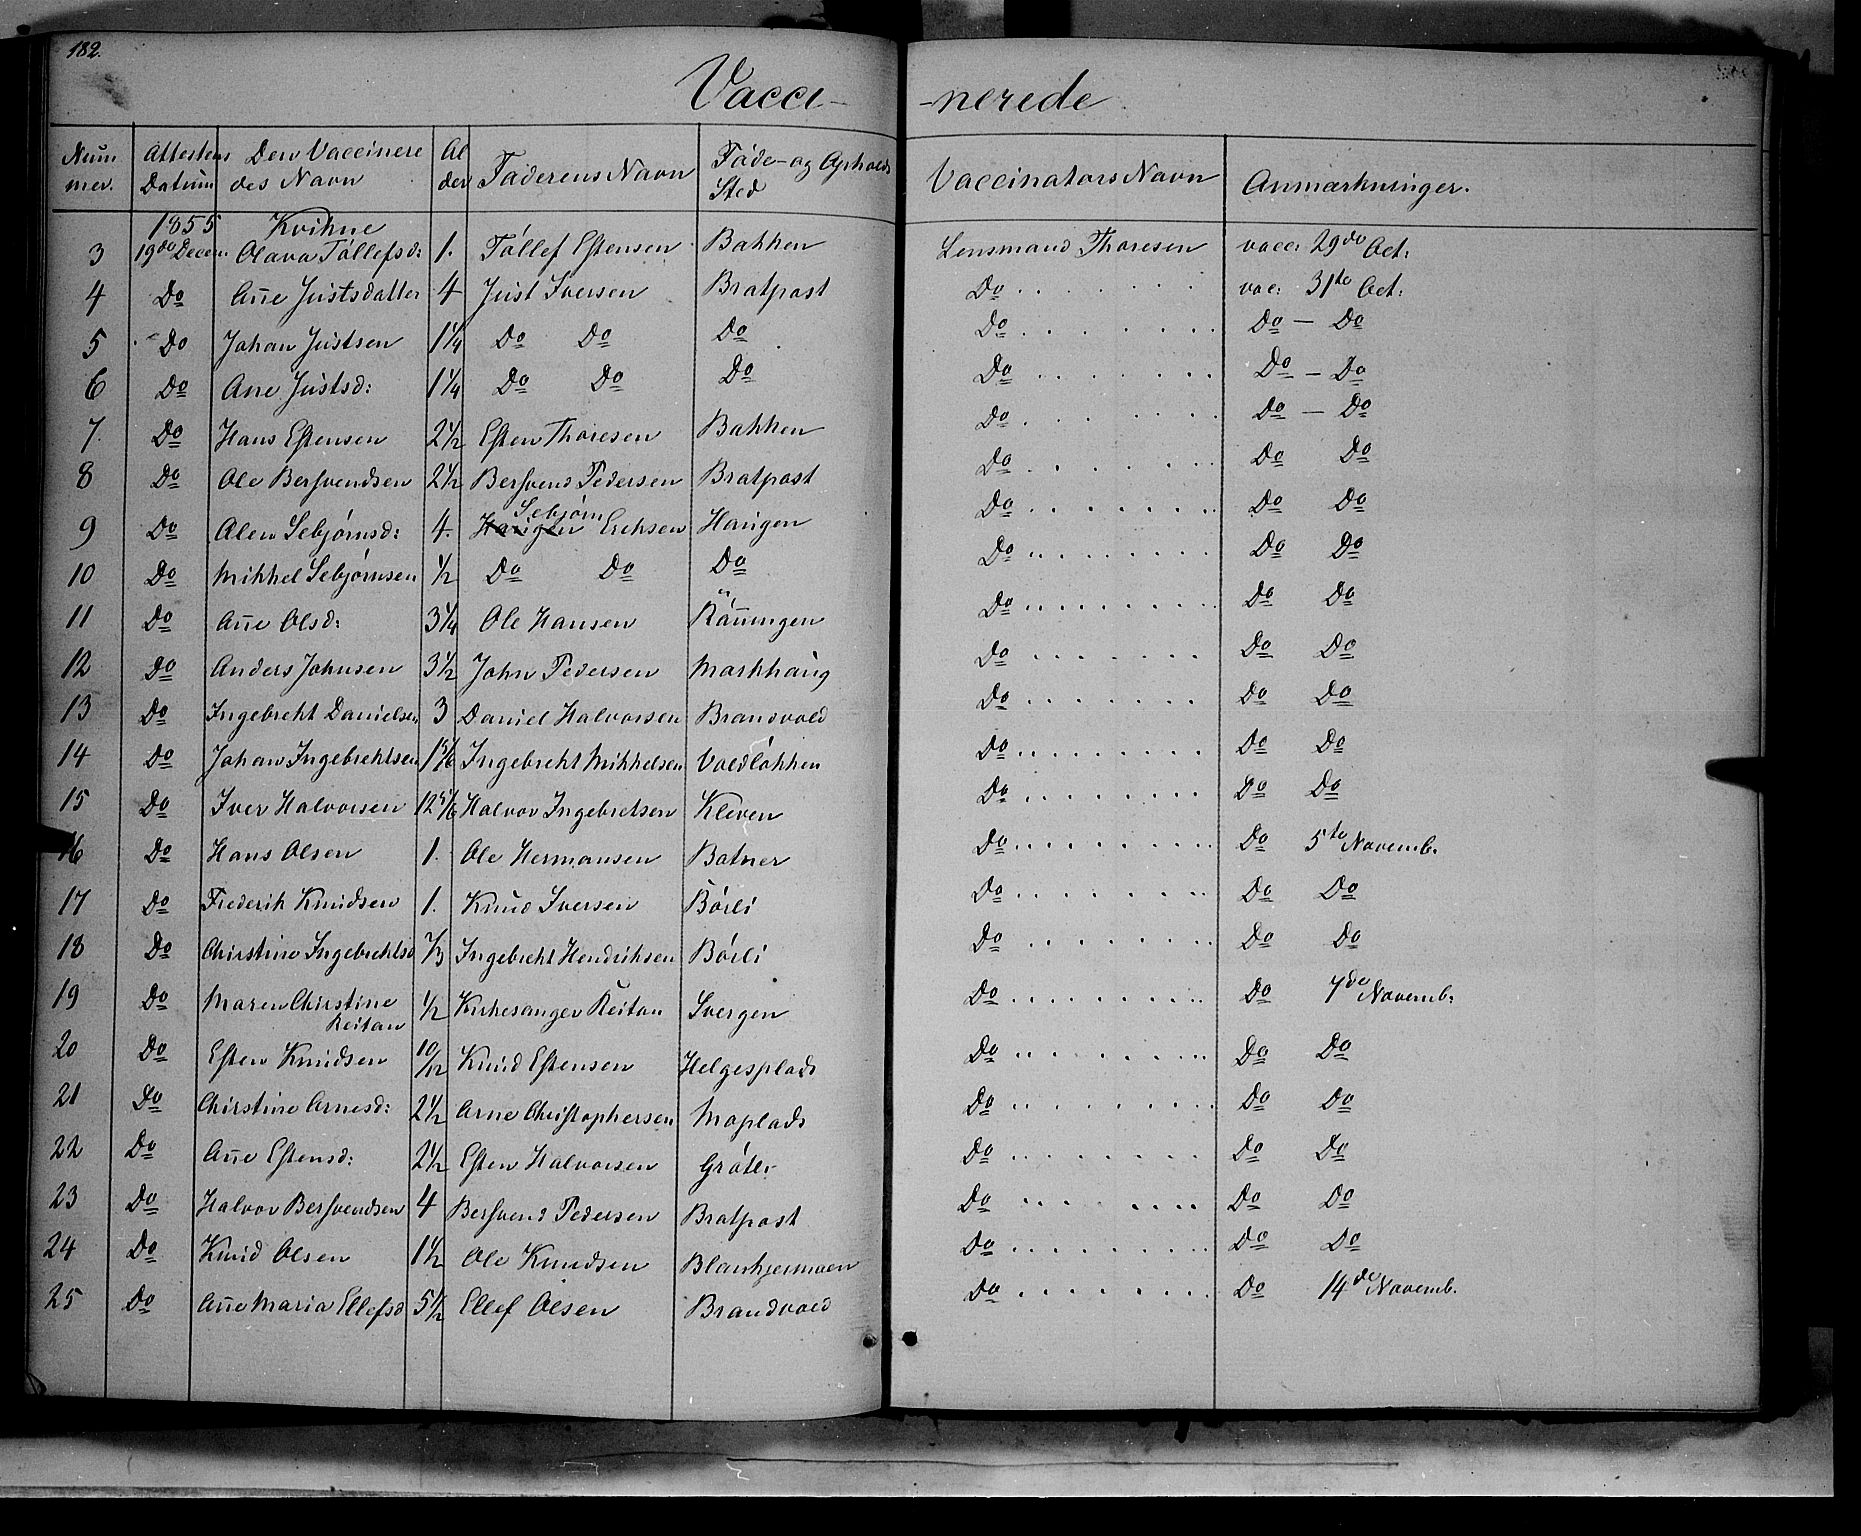 182.
Vacci- -nerede
Num mer. | Attestens Datum | Den Vaccinere des Navn | Al der | Faderens Navn | Føde- og Opholds Sted | Vaccinators Navn | Anmærkninger.
1855 Kvikne
3 | 19de Decem. | Olava Tøllefsd: | 1. | Tøllef Estensen | Bakken | Lensmand Thoresen | vacc: 29de Oct:
4 | Do | Añe Justsdatter | 4 | Just Iversen | Bratpost | Do | vac: 31te Oct:
5 | Do | Johan Justsen | 1 1/4 | Do Do | Do | Do | Do — Do
6 | Do | Ane Justsd: | 1 1/4 | Do Do | Do | Do | Do — Do
7. | Do | Hans Estensen | 2 1/2 | Esten Thoresen | Bakken | Do | Do — Do
8 | Do | Ole Bersvendsen | 2 1/2 | Bersvend Pedersen | Bratpost | Do | Do Do
9 | Do | Alen Sebjørnsd: | 4. | Haugen Sebjørn Erichsen | Haugen | Do | Do Do
10 | Do | Mikkel Sebjørnsen | 1/2 | Do Do | Do | Do | Do Do
11 | Do | Añe Olsd: | 3 1/4 | Ole Hansen | | Do | Do Do
12 | Do | Anders Johnsen | 3 1/2 | John Pedersen | Moskhaug | Do | Do Do
13 | Do | Ingebrekt Danielsen | 3 | Daniel Halvorsen | Brandvold | Do | Do Do
14 | Do | Johan Ingebrektsen | 1 5/6 | Ingebrekt Mikkelsen | Voldløkken | Do | Do Do
15 | Do | Iver Halvorsen | 12 5/6 | Halvor Ingebretsen | Kleven | Do | Do Do
16 | Do | Hans Olsen | 1. | Ole Hermansen | Botner | Do | Do 5te Novemb.
17 | Do | Frederik Knudsen | 1. | Knud Iversen | Børli | Do | Do Do
18 | Do | Christine Ingebrektsd | | Ingebrekt Hendriksen | Børli | Do | Do Do
19 | Do | Maren Christine Reitan | 1/2 | Kirkesanger Reitan | Svergen | Do | Do 7de Novemb:
20 | Do | Esten Knudsen | 10/12 | Knud Estensen | Helgesplads | Do | Do Do
21 | Do | Christine Arnesd: | 2 1/2 | Arne Christophersen | Moplads | Do | Do Do
22 | Do | Añe Estensd: | 2 1/2 | Esten Halvorsen | Grøtli | Do | Do Do
23 | Do | Halvor Bersvendsen | 4 | Bersvend Pedersen | Bratpost | Do | Do Do
24 | Do | Knud Olsen | 1 1/2 | Ole Knudsen | | Do | Do Do
25 | Do | Añe Maria Ellefsd | 5 1/2 | Ellef Olsen | Brandvold | Do | Do 14de Novemb.